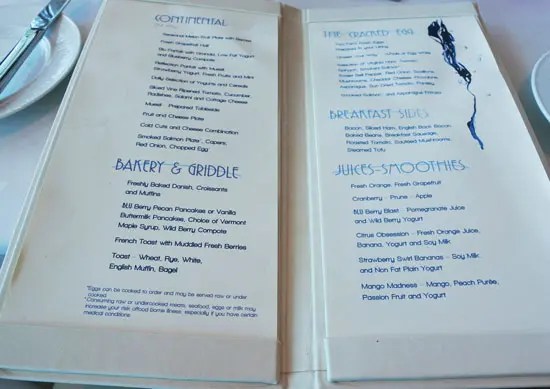 CONTINENTAL
Seasonal Melon Fruit Plate with Berries
Fresh Grapefruit Half
Bilu Parfait with Granola, Low Fat Yogurt
and Blueberry Compote
Reflection Parfait with Muesli
Strawberry Yogurt, Fresh Fruits and Mint
Daily Selection of Yogurts and Cereals
Sliced Vine Ripened Tomato, Cucumber
Radishes, Salami and Cottage Cheese
Muesli - Prepared Tableside
Fruit and Cheese Plate
Cold Cuts and Cheese Combination
Smoked Salmon Plate*, Capers,
Red Onion, Chopped Egg
BAKERY & GRIDDLE
Freshly Baked Danish, Croissants
and Muffins
BLU Berry Pecan Pancakes or Vanilla
Buttermilk Pancakes, Choice of Vermont
Maple Syrup, Wild Berry Compote
French Toast with Muddled Fresh Berries
Toast - Wheat, Rye, White,
English Muffin, Bagel
*Eggs can be cooked to order and may be served raw or under
cooked
*Consuming raw or undercooked meats, seafood, eggs or milk may
increase your risk of food borne illness, especially if you have certain
medical conditions
THE CRACKED EGG
Two Farm Fresh Eggs
Prepared to your liking
Omelet Your Way - Whole or Egg White
Selection of Virginia Ham, Tomato
Spinach, Smoked Salmon*
Sweet Bell Pepper, Red Onion, Scallions
Mushrooms, Cheddar Cheese, Provolone
Asparagus, Sun Dried Tomato, Parsley
Smoked Salmon* and Asparagus Frittata
BREAKFAST SIDES
Bacon, Sliced Ham, English Back Bacon
Baked Beans, Breakfast Sausage,
Roasted Tomato, Sautéed Mushrooms
Steamed Tofu
JUICES-SMOOTHIES
Fresh Orange, Fresh Grapefruit
Cranberry - Prune - Apple
BLU Berry Blast - Pomegranate Juice
and Wild Berry Yogurt
Citrus Obsession - Fresh Orange Juice,
Banana, Yogurt and Soy Milk
Strawberry Swirl Bananas - Soy Milk
and Non Fat Plain Yogurt
Mango Madness - Mango, Peach Purée,
Passion Fruit and Yogurt